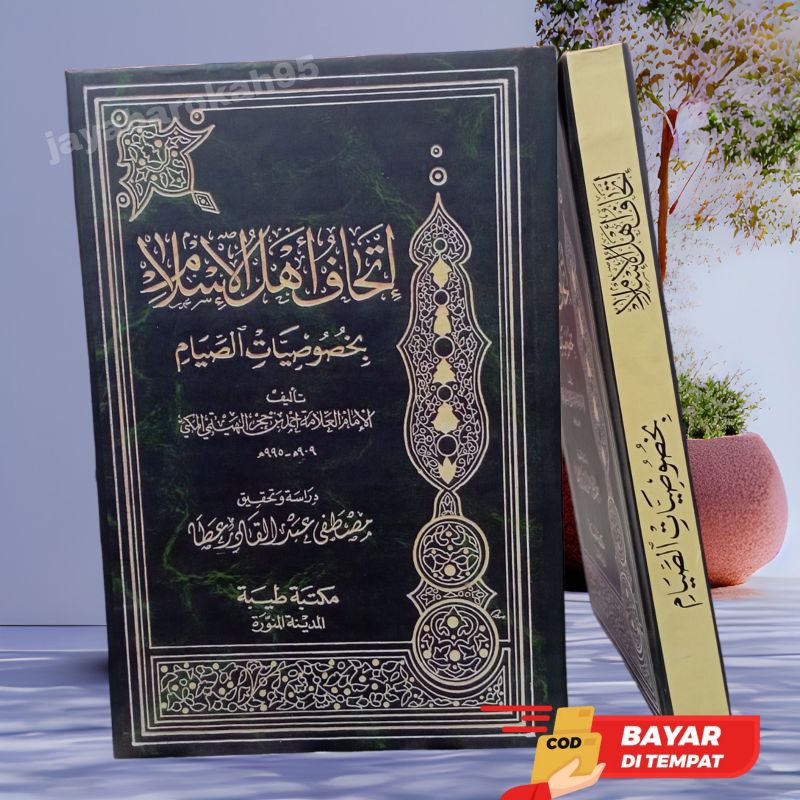 jayabarokah95
إتحاف أهل الإسلام
بخصوصيات الصيام
تأليف
الإمام العلامة أحمد بن حجر الهيتمي المكي
٩٠٩هـ - ٩٩٥هـ
دراسة وتحقيق
مصطفى عبد القادر عطا
مكتبة طيبة
المدينة المنورة
إتحاف أهل الإسلام
بخصوصيات الصيام
COD
BAYAR
DI TEMPAT